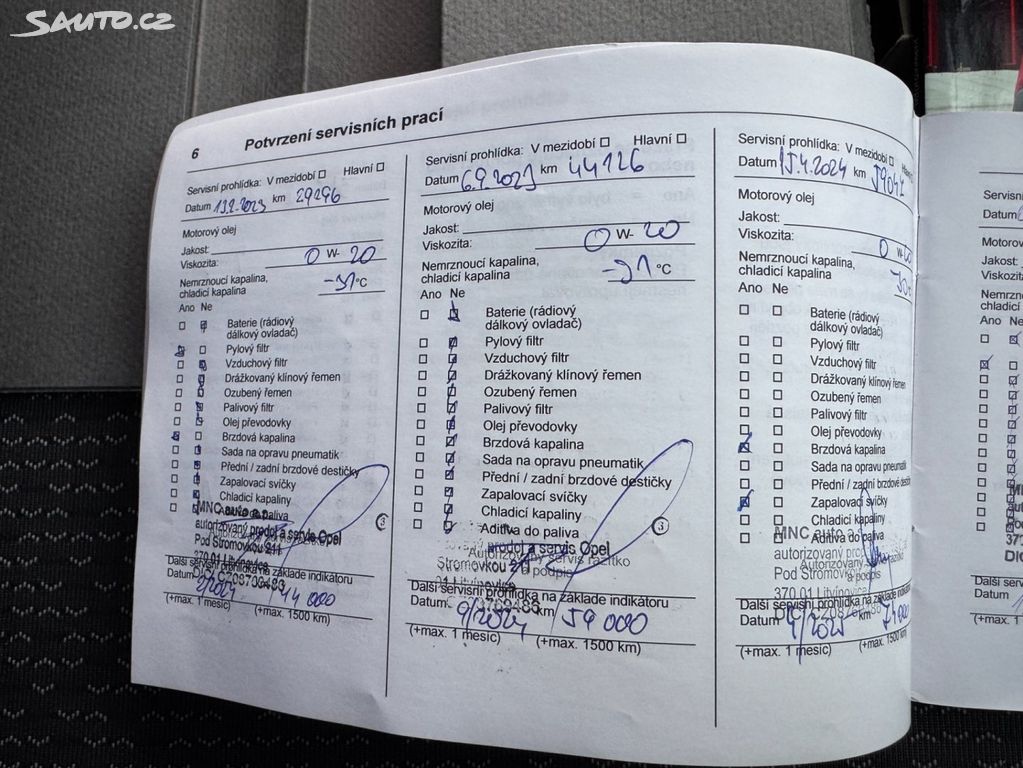 SAUTO.CZ
6 Potvrzení servisních prací
Servisní prohlídka: V mezidobí Hlavní
Datum 13.2.2023 km 29296
Motorový olej
Jakost:
Viskozita: 0 W- 20
Nemrznoucí kapalina,
chladicí kapalina -31 °C
Ano Ne
Baterie (rádiový
dálkový ovladač)
Pylový filtr
Vzduchový filtr
Drážkovaný klínový řemen
Ozubený řemen
Palivový filtr
Olej převodovky
Brzdová kapalina
Sada na opravu pneumatik
Přední / zadní brzdové destičky
Zapalovací svíčky
Chladicí kapaliny
Aditiva do paliva
MNC auto
autorizovaný prodej a servis Opel
Pod Stromovkou 211
370 01 Litvínovice
Další servisní prohlídka na základe indikátoru
Datum 2/2024 44 000
(+max. 1 mesic) (+max. 1500 km)
Servisní prohlídka: V mezidobí Hlavní
Datum 6.9.2023 km 44126
Motorový olej
Jakost:
Viskozita: 0 W- 20
Nemrznoucí kapalina,
chladicí kapalina -31 °C
Ano Ne
Baterie (rádiový
dálkový ovladač)
Pylový filtr
Vzduchový filtr
Drážkovaný klínový řemen
Ozubený řemen
Palivový filtr
Olej převodovky
Brzdová kapalina
Sada na opravu pneumatik
Přední / zadní brzdové destičky
Zapalovací svíčky
Chladicí kapaliny
Aditiva do paliva
3
prodej a servis Opel
Autorizovaný servis razítko
Stromovkou 211
a podpis
Další servisní prohlídka na základe indikátoru
Datum: 9/2024 km 59 000
(+max. 1 mesic) (+max. 1500 km)
Servisní prohlídka: V mezidobí
Datum 15.4.2024 km
Motorový olej
Jakost:
Viskozita: 0 W-
Nemrznoucí kapalina,
chladicí kapalina
Ano Ne
Baterie (rádiový
dálkový ovladač)
Pylový filtr
Vzduchový filtr
Drážkovaný klínový řemen
Ozubený řemen
Palivový filtr
Olej převodovky
Brzdová kapalina
Sada na opravu pneumatik
Přední / zadní brzdové
Zapalovací svíčky
Chladicí kapaliny
Aditiva do paliva
MNC auto
autorizovaný
Autorizovaný
Pod Stromovkou
a podpis
370 01 Litvínovice
Další servisní prohlídka na základe
Datum 4/2025 km
(+max. 1 mesic) (+max. 1500 km)
Jakost:
Ano Ne